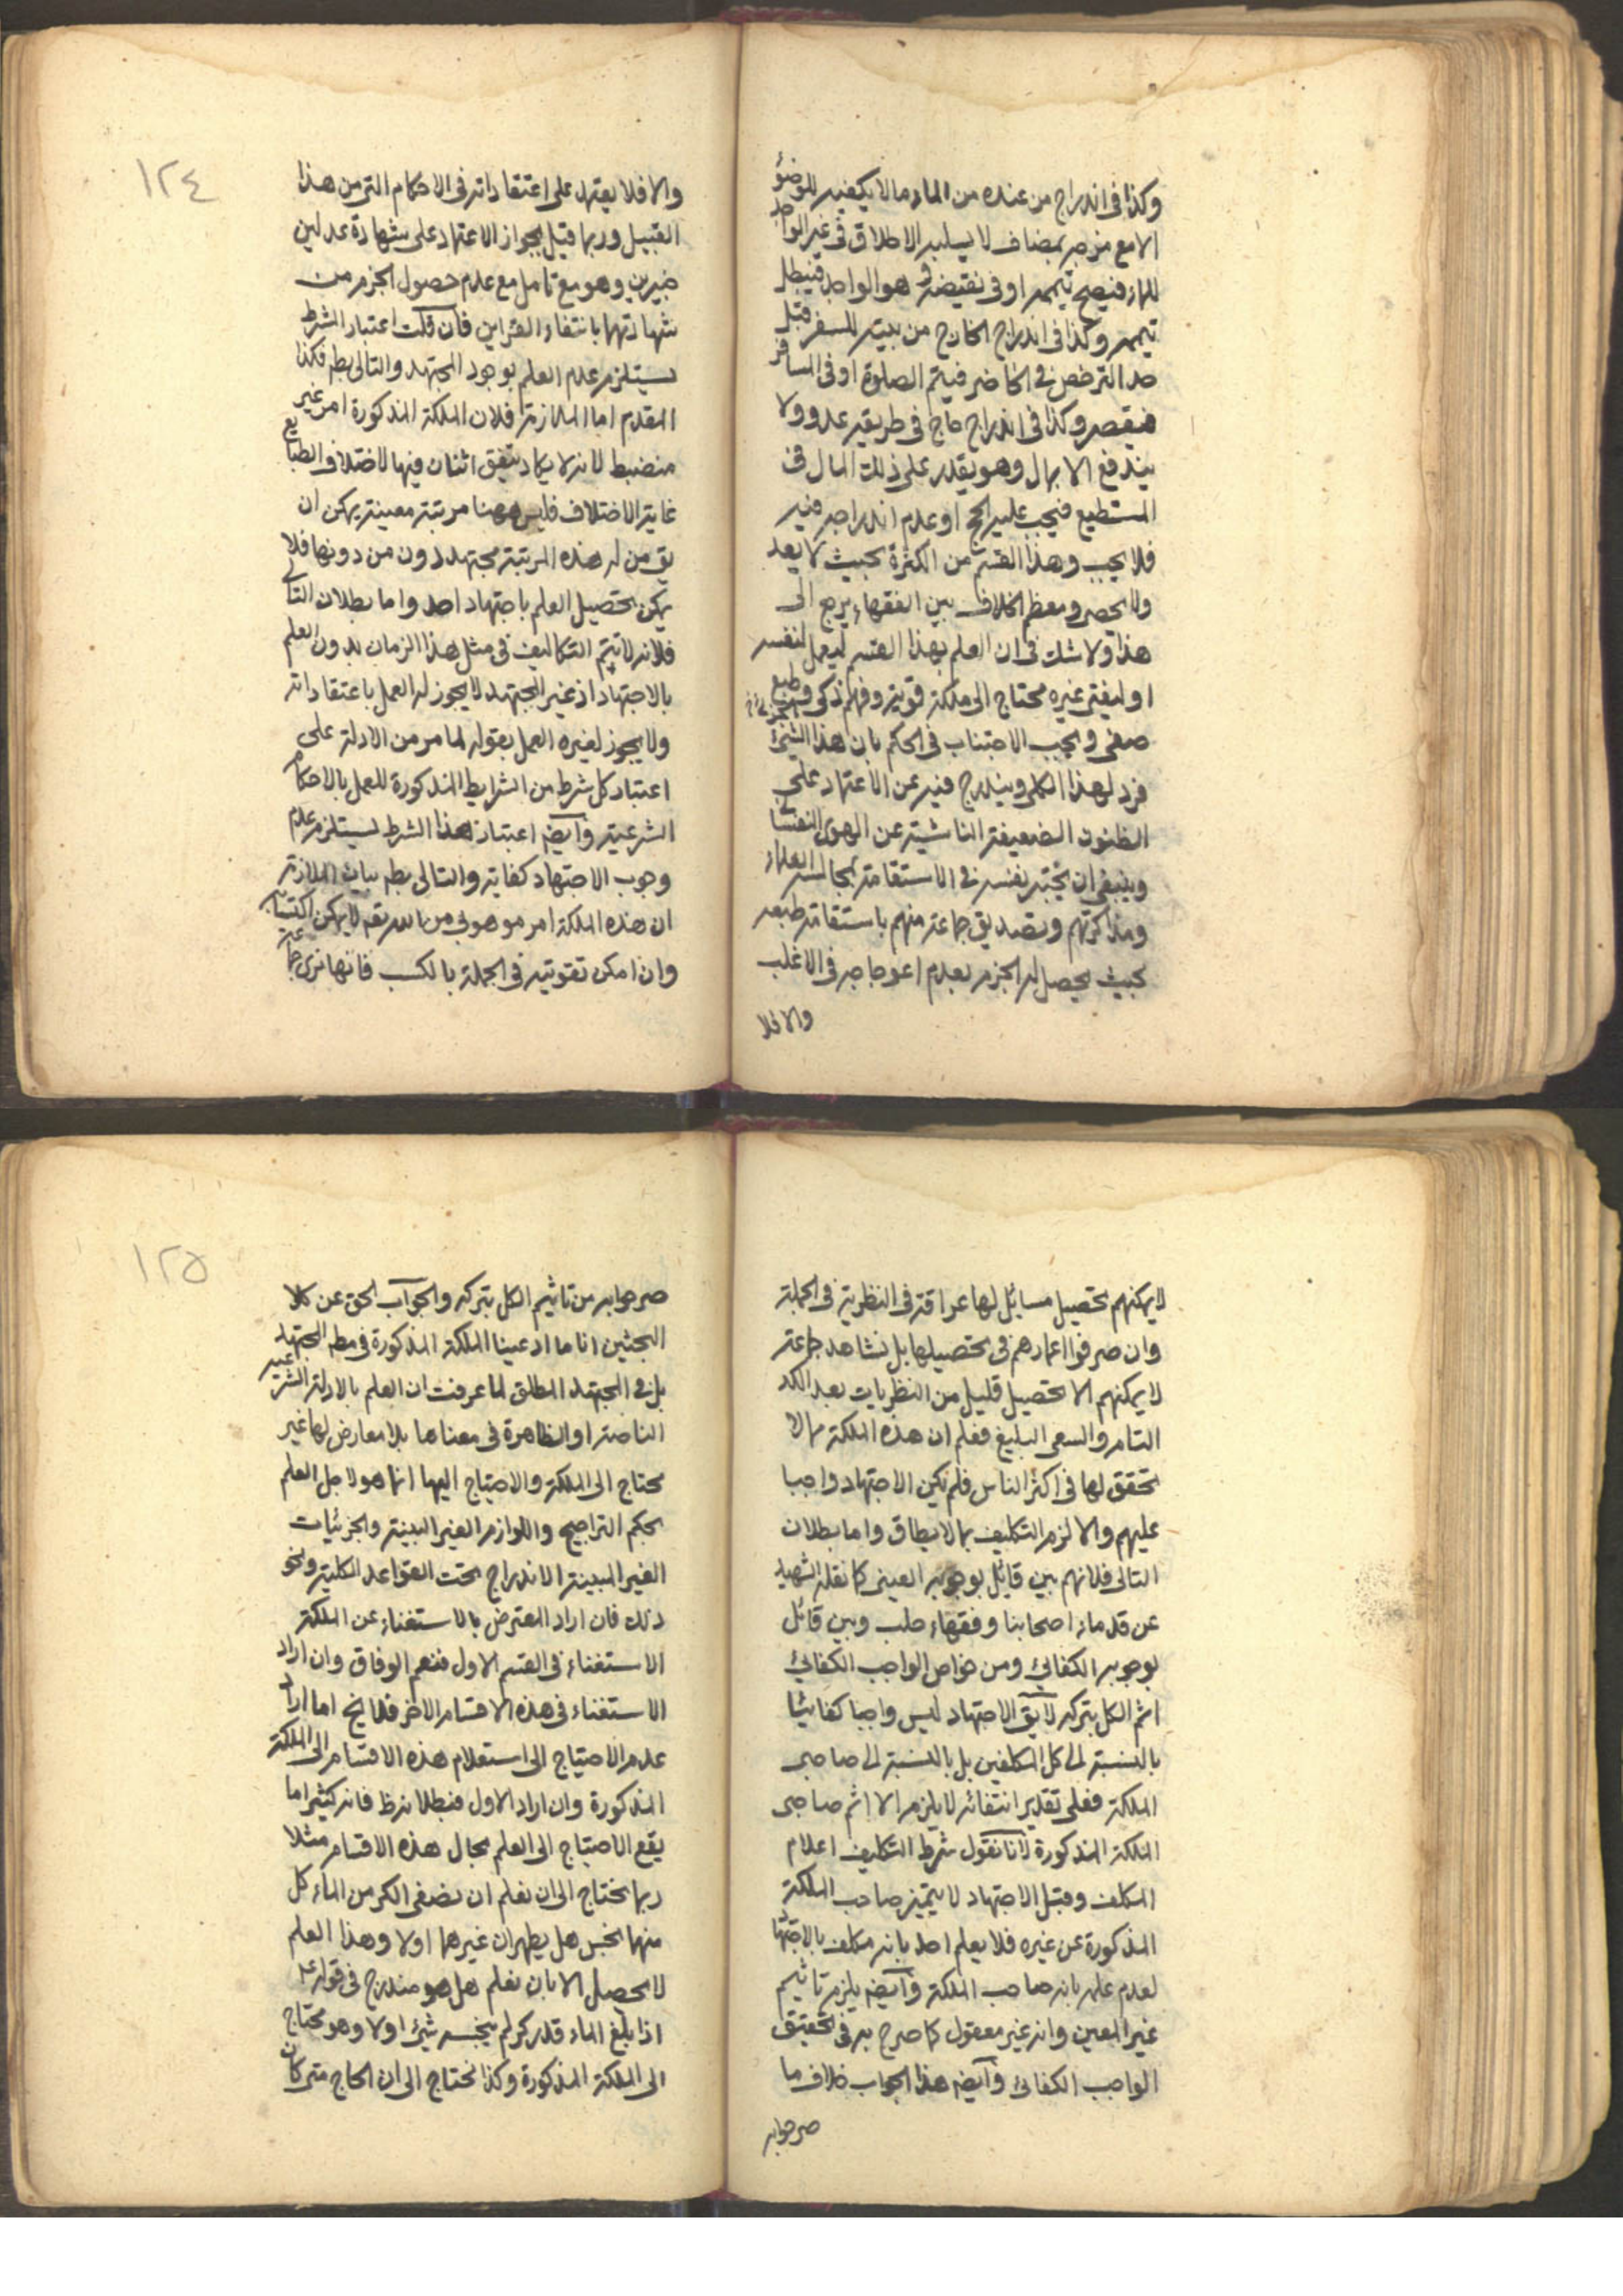 وكذا فى اندراج من عنده من الماء ما لا يكفيه للوضوء
الا مع مزجه بمضاف لا يسلبه الاطلاق فى غير الواجد
للماء فيصح تيممه او فى نقيضه و هو الواجد فيبطل
تيممه وكذا فى اندراج الخارج من بيته للسفر قبل
حد الترخص فى الحاضر فيتم الصلوة او فى المسافر
فيقصر وكذا فى اندراج حاج فى طريقه عدو ولا
يندفع الا بمال وهو يقدر على ذلك المال فى
المستطيع فيجب عليه الحج او عدم اندراجه فيه
فلا يجب وهذا القسم من الكثرة بحيث لا يعد
ولا يحصر ومعظم الخلاف بين الفقهاء يرجع الى
هذا ولا شك فى ان العلم بهذا القسم ليعمل لنفسه
او ليفتى غيره محتاج الى ملكة قوية وفهم ذكى وطبع
صفى ويجب الاجتناب فى الحكم بان هذا الشئ الجزئى
فرد لهذا الكلى ويندرج فيه عن الاعتماد على
الظنون الضعيفة الناشية عن الهوى النفسا
وينبغى ان يختبر نفسه فى الاستقامة بمجالسة العلماء
ومذاكرتهم وتصديق جماعة منهم باستقامة طبعه
بحيث يحصل له الجزم بعدم اعوجاجه فى الاغلب
والا فلا
١٢٤
والا فلا يعتمد على اعتقاداته فى الاحكام التى من هذا
القبيل وربما قيل بجواز الاعتماد على شهادة عدلين
خبيرين وهو مع تامل مع عدم حصول الجزم من
شهادتهما بانتفاء القراين فان قلت اعتبار الشرط
يستلزم عدم العلم بوجود المجتهد والتالى بط فكذا
المقدم اما الملازمة فلان الملكة المذكورة امر غير
منضبط لانه لا يكاد يتفق اثنان فيها لاختلاف الطبايع
غاية الاختلاف فليس ههنا مرتبة معينة يمكن ان
يق من له هذه المرتبة مجتهد دون من دونها فلا
يمكن تحصيل العلم باجتهاد احد واما بطلان التا
فلانه لا يتم التكاليف فى مثل هذا الزمان بدون العلم
بالاجتهاد اذ غير المجتهد لا يجوز له العمل باعتقاداته
ولا يجوز لغيره العمل بقوله لما مر من الادلة على
اعتبار كل شرط من الشرايط المذكورة للعمل بالاحكام
الشرعية وايضا اعتبار هذا الشرط يستلزم عدم
وجوب الاجتهاد كفاية والتالى بط بيان الملازمة
ان هذه الملكة امر موهوبى من الله تعه لا يمكن اكتسابه
وان امكن تقويته فى الجملة بالكسب فانها نرى جما
لا يمكنهم تحصيل مسائل لها عراقة فى النظرية فى الجملة
وان صرفوا اعمارهم فى تحصيلها بل نشاهد جماعة
لا يمكنهم الا تحصيل قليل من النظريات بعد الكد
التام والسعى البليغ فعلم ان هذه الملكة مما لا
تحقق لها فى اكثر الناس فلم يكن الاجتهاد واجبا
عليهم والا لزم التكليف بما لا يطاق واما بطلان
التالى فلانهم بين قائل بوجوبه العينى كما نقله الشهيد
عن قدماء اصحابنا وفقهاء حلب وبين قائل
بوجوبه الكفائى ومن خواص الواجب الكفائى
اثم الكل بتركه لا يق الاجتهاد ليس واجبا كفائيا
بالنسبة الى كل المكلفين بل بالنسبة الى صاحبى
الملكة فعلى تقدير انتفائه لا يلزم الا اثم صاحبى
الملكة المذكورة لانا نقول شرط التكليف اعلام
المكلف وقبل الاجتهاد لا يتميز صاحب الملكة
المذكورة عن غيره فلا يعلم احد بانه مكلف بالاجتها
لعدم علمه بانه صاحب الملكة وايضه يلزم تاثيم
غير المعين وانه غير معقول كما صرح به فى تحقيق
الواجب الكفائى وايضه هذا الجواب خلاف ما
صرحوا به
١٢٥
صرحوا به من تاثيم الكل بتركه والجواب الحق عن كلا
البحثين انا ما ادعينا الملكة المذكورة فى مط المجتهد
بل فى المجتهد المطلق لما عرفت ان العلم بالادلة الشرعية
الناصة او الظاهرة فى معناها بلا معارض لها غير
محتاج الى الملكة والاحتياج اليها انما هو لاجل العلم
بحكم التراجيح واللوازم الغير البينة والجزئيات
الغير المبينة الاندراج تحت القواعد الكلية ونحو
ذلك فان اراد المعترض بالاستغناء عن الملكة
الاستغناء فى القسم الاول فنعم الوفاق وان اراد
الاستغناء فى هذه الاقسام الاخر فلا يخ اما اراد
عدم الاحتياج الى استعلام هذه الاقسام الى الملكة
المذكورة وان اراد الاول فبطلانه ظ فانه كثيرا ما
يقع الاحتياج الى العلم بحال هذه الاقسام مثلا
ربما نحتاج الى ان نعلم ان نصفى الكر من الماء كل
منهما نجس هل يطهران غيرهما اولا وهذا العلم
لا يحصل الا بان نعلم هل هو مندرج فى قوله ع
اذا بلغ الماء قدر كر لم ينجسه شئ اولا وهو محتاج
الى الملكة المذكورة وكذا نحتاج الى ان الحاج متى كان